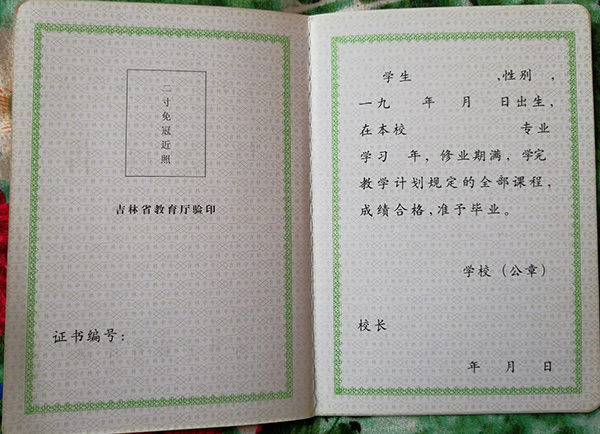 二寸免冠近照
吉林省教育厅验印
证书编号：
学生 ,性别 ,
一九 年 月 日出生,
在本校 专业
学习 年, 修业期满, 学完
教学计划规定的全部课程,
成绩合格,准予毕业。
学校（公章）
校长
年 月 日